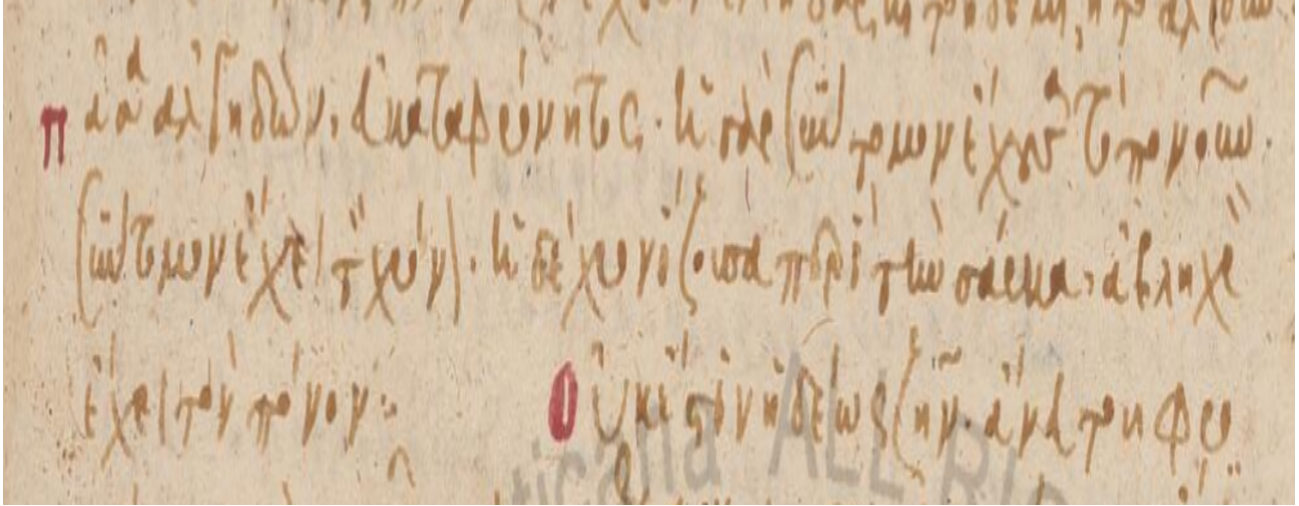 πᾶσα ἀλγηδὼν εὐκαταφρόνητος· ἡ γὰρ σύντομον ἔχουσα τὸ πονοῦν·
σύντομον ἔχει τὸν χρόνον· ἡ δὲ χρονίζουσα περὶ τὴν σάρκα, ἀβληχρὸν
ἔχει τὸν πόνον: Οὐκ ἔστιν ἡδέως ζῆν ἄνευ τοῦ φρο